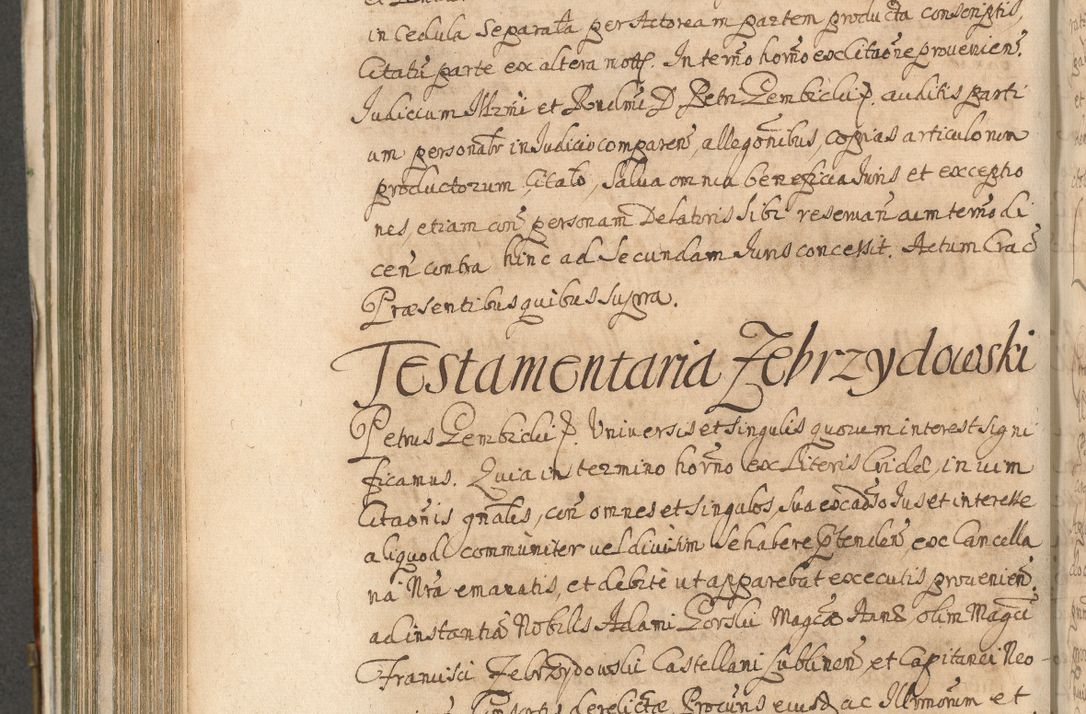 in Cedula Separata per Actoream partem producta conscriptis,
Citatũ parte ex altera nott. In terño horño ex Citaoñe provenien̄.
Judicium Illrm̃i et Rndm̃i D Petri Gembicki P. auditis parti
um personalr̃ in Judicio comparen̄, allegoñibus, copias articulorum
productorum Citato, salva omnia beneficia Juris et exceptio
nes, etiam con̄ personam Delatoris sibi reservan̄ cum terño di
cen̄ contra hinc ad Secundam Juris concessit. Actum Crac̄
Præsentibus quibus supra.
Testamentaria Zebrzydowski
Petrus Gembicki P. Universis et singulis quorum interest signi
ficamus. Quia in termino horño ex Literis Cridæ, in vim
Citaoñis gñalis, con̄ omnes et singulos, sua eocaõso Jus et interesse
aliquod communiter vel divisim se habere p̃tenden̄ ex Cancella
ria Nrã emanatis, et debitè ut apparebat executis provenien̄.
ad instantiã Nobilis Adami Gorski Magcæ Annæ olim Magci
Francisci Zebrzydowski Castellani Lublinen̄ et Capitanei Neo
derelictæ Procuris eiusq ac Illrmorum et